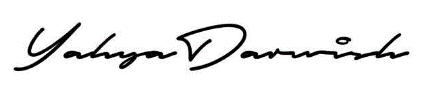 Yahya Darwish